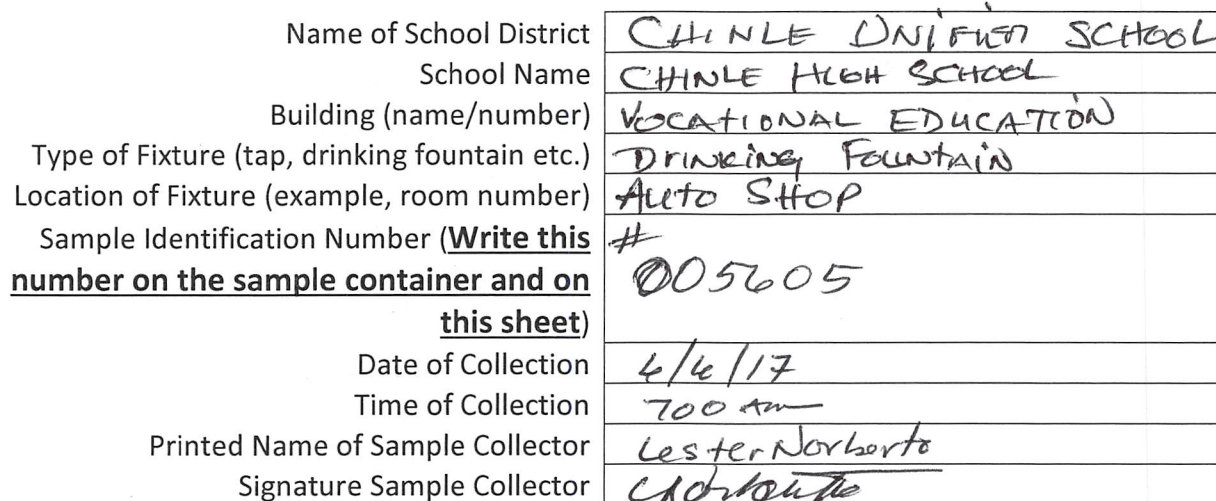 Name of School District CHINLE UNIFIED SCHOOL
School Name CHINLE HIGH SCHOOL
Building (name/number) VOCATIONAL EDUCATION
Type of Fixture (tap, drinking fountain etc.) DrINKING FOUNTAIN
Location of Fixture (example, room number) AUTO SHOP
Sample Identification Number (Write this #
number on the sample container and on 005605
this sheet)
Date of Collection /17
Time of Collection 700 Am
Printed Name of Sample Collector Lester Norberto
Signature Sample Collector